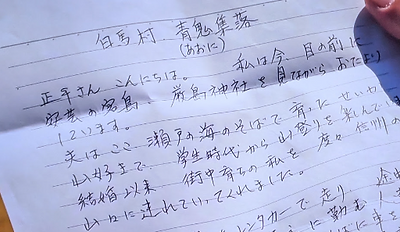 白馬村 青鬼集落
(あおに)
正平さん こんにちは。 私は今、目の前に
安芸の宮島 厳島神社を見ながらおたより
しています。
夫はここ瀬戸の海のそばで育ったせいか
山好きで、学生時代から山登りを楽しんで
結婚以来 街中育ちの私を 度々 信州の
山々に連れていってくれました。
レンタカーで走り、途中
に勤む